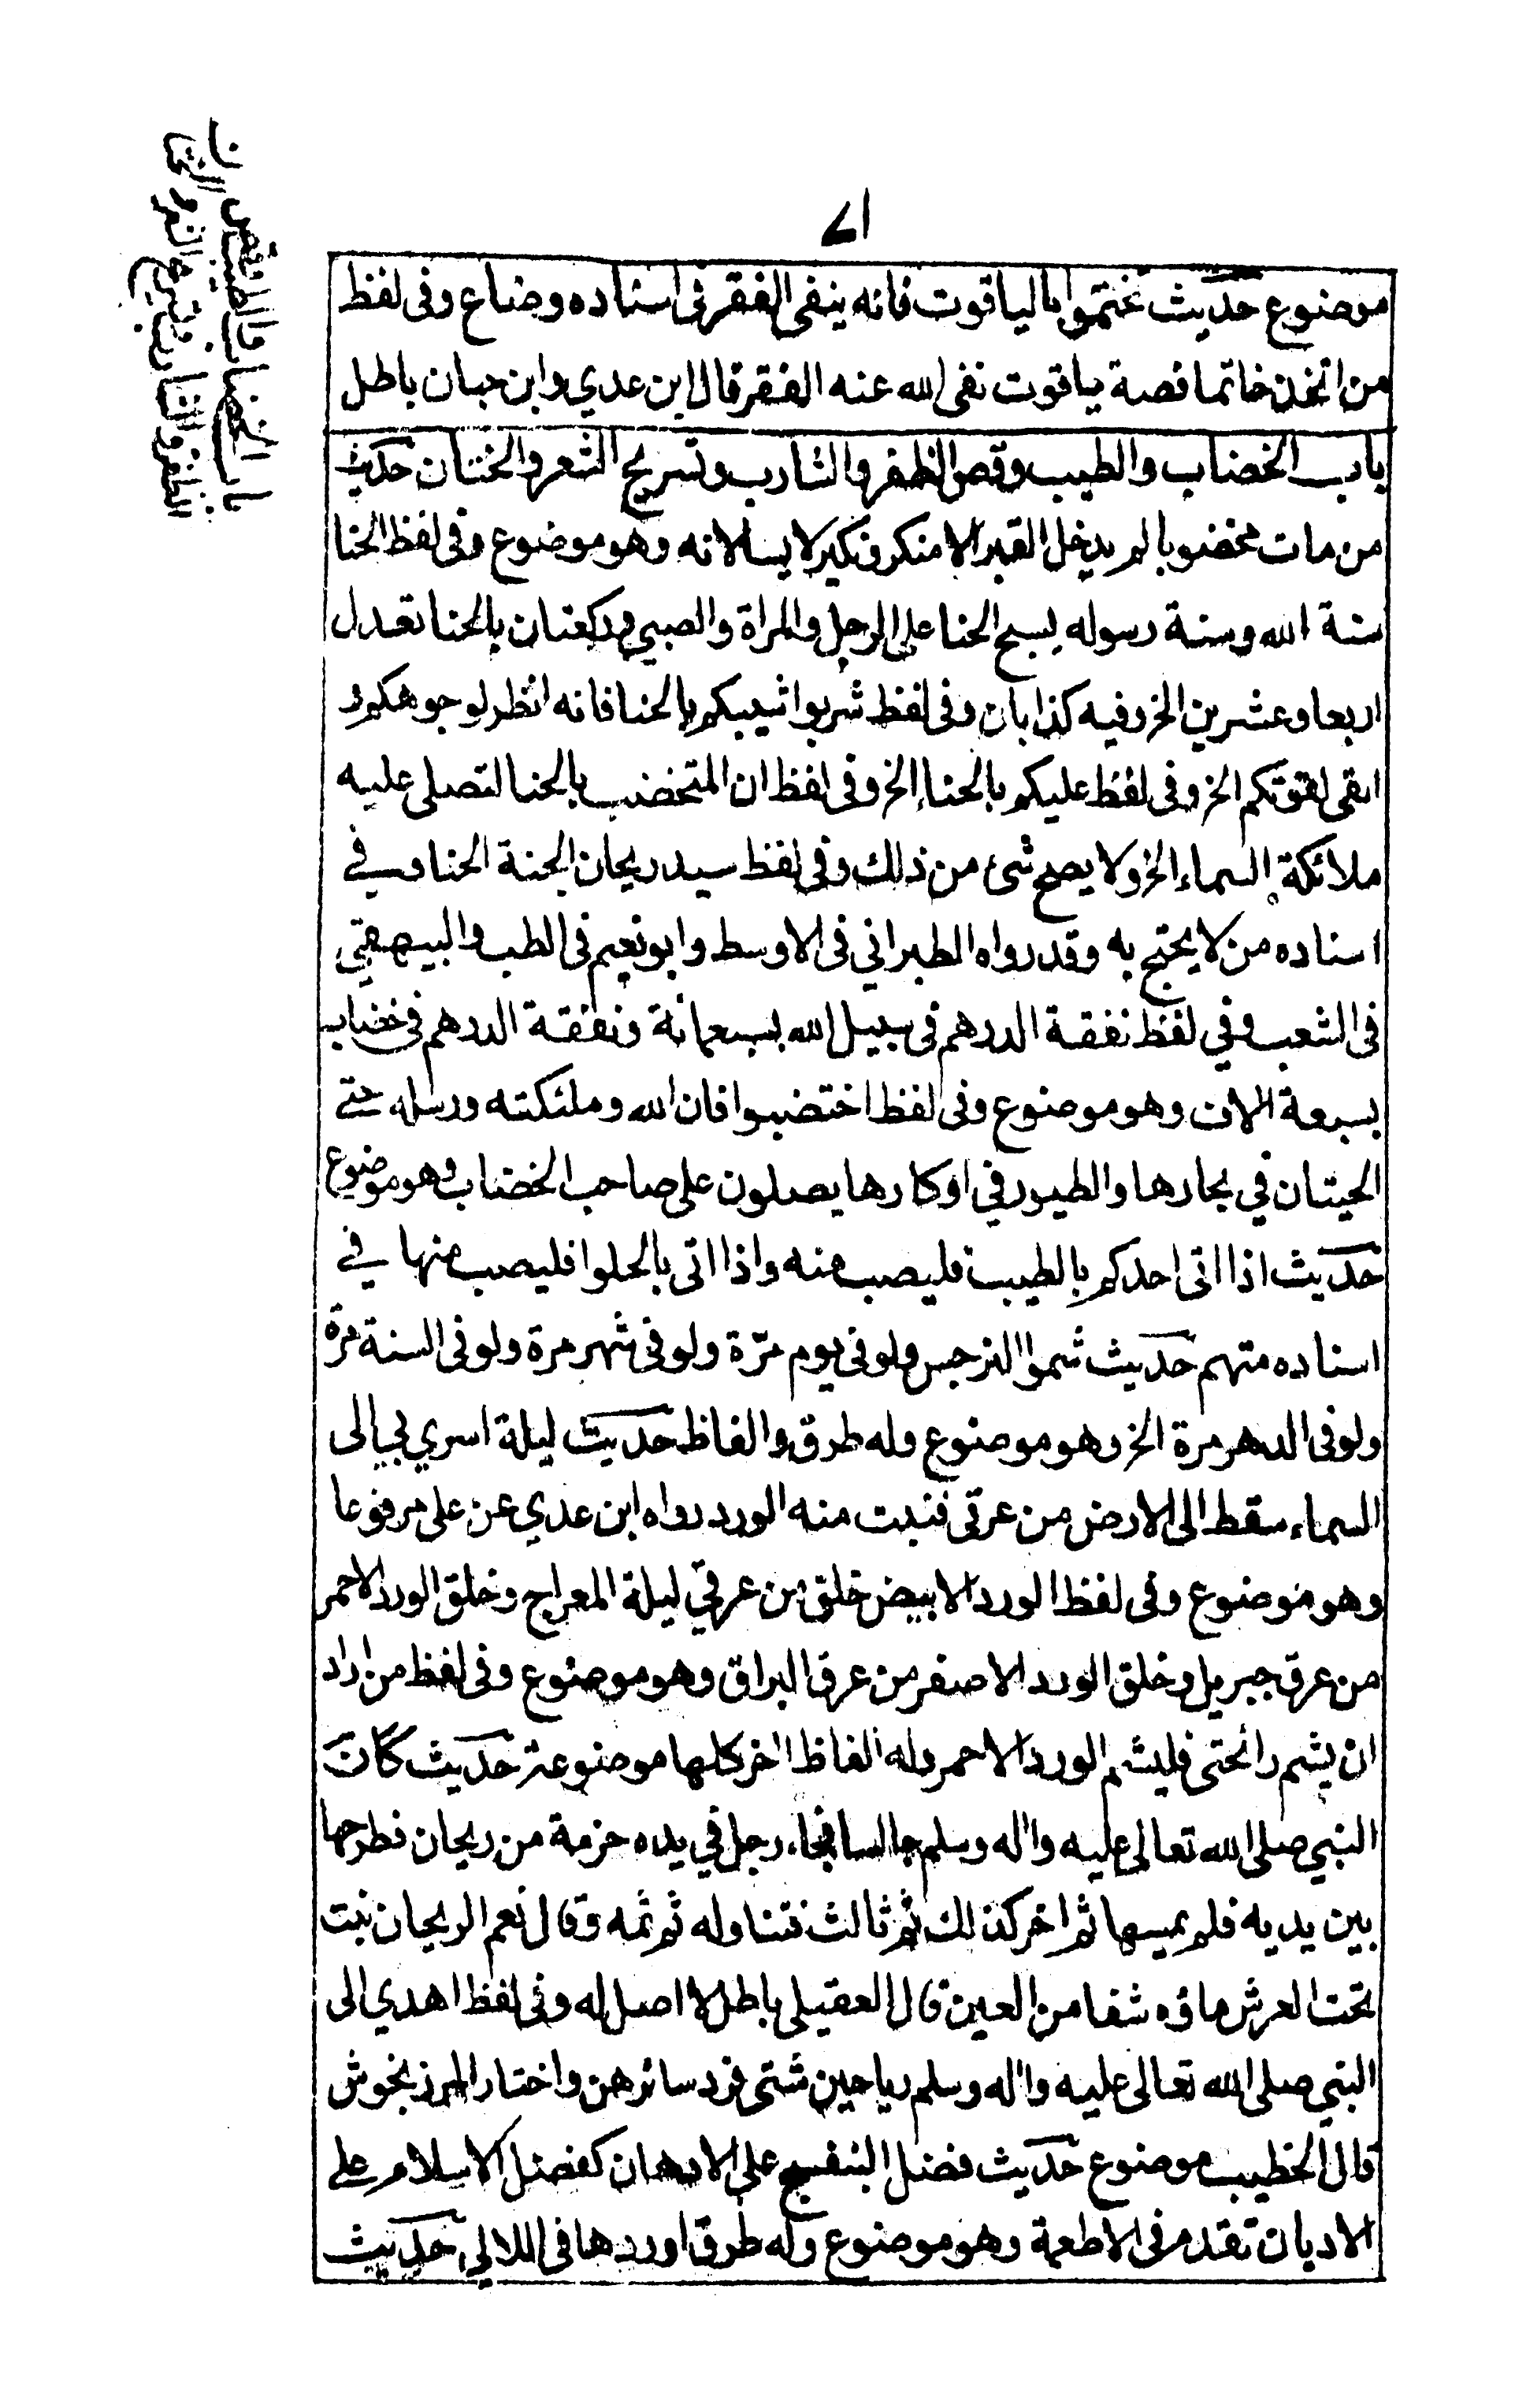 ٧١
موضوع حديث تختموا بالياقوت فانه ينفى الفقر فى اسناده وضاع وفى لفظ
من اتخذ خاتما فصه ياقوت نفى الله عنه الفقر قال ابن عدي وابن حبان باطل
باب الخضاب والطيب وقص الظفر والشارب وتسريح الشعر والختان حديث
من مات مخضوبا لم يدخل القبر الا منكر ونكير لا يسالانه وهو موضوع وفى لفظ الحنا
سنة الله وسنة رسوله يسبح الحنا على الرجل والمراة والصبي وركعتان بالحنا تعدل
اربعا وعشرين الخ وفيه كذابان وفى لفظ شربوا شيبكم بالحنا فانه انظر لوجوهكم و
انقى لقوتكم الخ وفى لفظ عليكم بالحناء الخ وفى لفظ ان المتخضب بالحنا لتصلى عليه
ملائكة السماء الخ ولا يصح شئ من ذلك وفى لفظ سيد ريحان الجنة الحنا وفي
اسناده من لا يحتج به وقد رواه الطبراني فى الاوسط وابو نعيم فى الطب والبيهقي
فى الشعب وفي لفظ نفقة الدرهم فى سبيل الله بسبعمائة ونفقة الدرهم فى خضاب
بسبعة الاف وهو موضوع وفى لفظ اختضبوا فان الله وملئكته ورسله حتے
الحيتان في بحارها والطيور في اوكارها يصلون على صاحب الخضاب وهو موضوع
حديث اذا اتى احدكم بالطيب فليصب منه واذا اتى بالحلوا فليصب منها في
اسناده متهم حديث شموا النرجس ولو فى يوم مرّة ولو فى شهر مرة ولو فى السنة مرة
ولو فى الدهر مرة الخ وهو موضوع وله طرق والفاظ حديث ليلة اسري بي الى
السماء سقط الى الارض من عرقى فنبت منه الورد رواه ابن عدي عن على مرفوعا
وهو موضوع وفى لفظ الورد الابيض خلق من عرقي ليلة المعراج وخلق الورد الاحمر
من عرق جبريل وخلق الورد الاصفر من عرق البراق وهو موضوع وفى لفظ من اراد
ان يشم رائحتى فليشم الورد الاحمر وله الفاظ اخر كلها موضوعة حديث كان
النبي صلى الله تعالى عليه واله وسلم جالسا فجاء رجل في يده حزمة من ريحان فطرحها
بين يديه فلم يمسها ثم اخر كذلك ثم ثالث فتناوله ثم شمه وقال نعم الريحان نبت
تحت العرش ماؤه شفا من العين قال العقيلى باطل لا اصل له وفى لفظ اهدي الى
النبي صلى الله تعالى عليه واله وسلم رياحين شتى فرد سائرهن واختار المرزنجوش
قال الخطيب موضوع حديث فضل البنفسج على الادهان كفضل الاسلام على
الاديان تقدم فى الاطعمة وهو موضوع وله طرق اوردها فى اللالي حديث
باب الخضاب والطيب وقص
الظفر والشارب وتسريح الشعر والختان